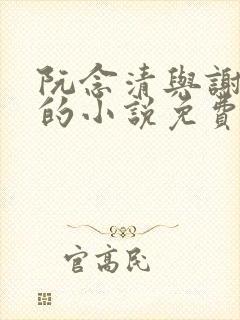 阮念清與謝
的小說免費
官高民